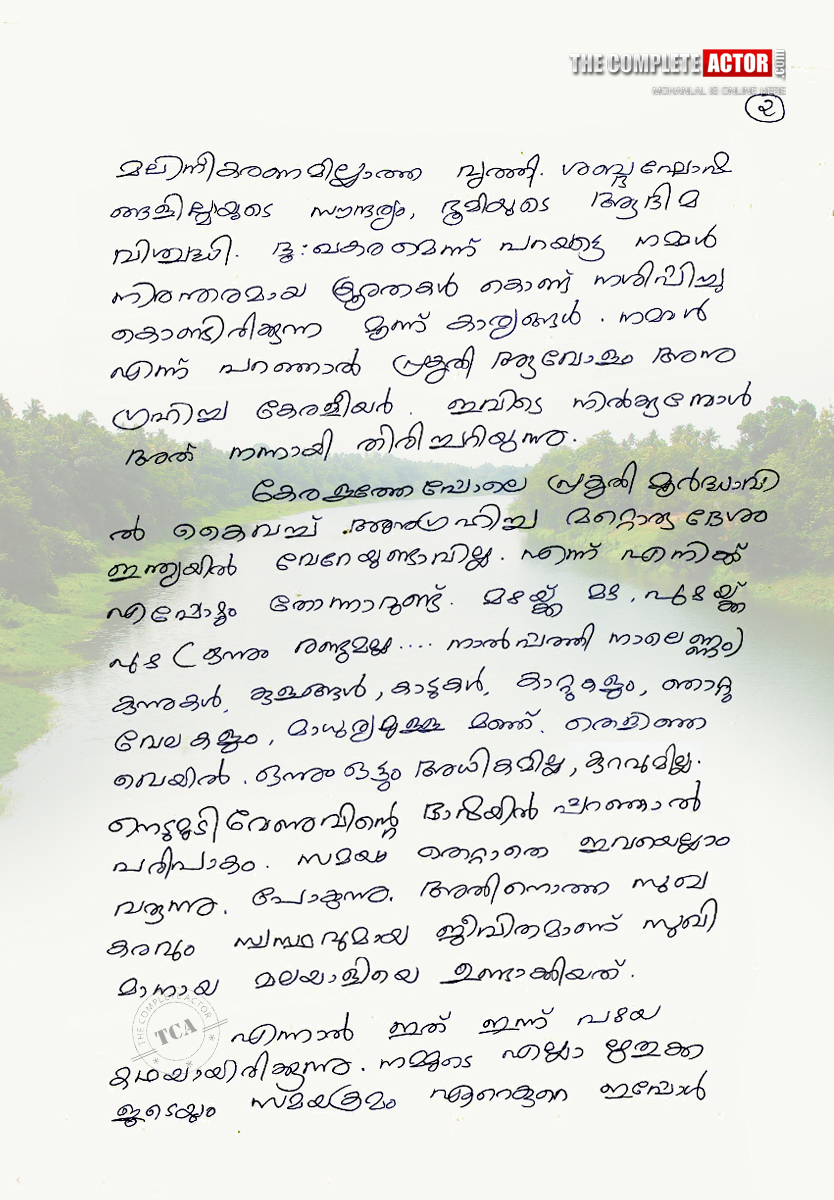 THE COMPLETE ACTOR .com
MOHANLAL IS ONLINE HERE
൨
മലിനീകരണമില്ലാത്ത വൃത്തി. ശബ്ദഘോഷ
ങ്ങളില്ലായുടെ സൗന്ദര്യം, ഭൂമിയുടെ ആദിമ
വിശുദ്ധി. ദു:ഖകരമെന്ന് പറയട്ടെ നമ്മൾ
നിരന്തരമായ ക്രൂരതകൾ കൊണ്ട് നശിപ്പിച്ചു
കൊണ്ടിരിക്കുന്ന മൂന്ന് കാര്യങ്ങൾ. നമ്മൾ
എന്ന് പറഞ്ഞാൽ പ്രകൃതി ആവോളം അനു
ഗ്രഹിച്ച കേരളീയർ. ഇവിടെ നിൽക്കുമ്പോൾ
അത് നന്നായി തിരിച്ചറിയുന്നു.
കേരളത്തേപ്പോലെ പ്രകൃതി മൂർദ്ധാവി
ൽ കൈവച്ച് അനുഗ്രഹിച്ച മറ്റൊരു ദേശം
ഇന്ത്യയിൽ വേറേയുണ്ടാവില്ല. എന്ന് എനിക്ക്
എപ്പോഴും തോന്നാറുണ്ട്. മഴയ്ക്ക് മഴ, പുഴയ്ക്ക്
പുഴ (ഒന്നും രണ്ടുമല്ല.... നാൽപ്പത്തി നാലെണ്ണം)
കുന്നുകൾ, കുളങ്ങൾ, കാടുകൾ, കാറ്റുകളും, ഞാറ്റു
വേലകളും, മാധുര്യമുള്ള മഞ്ഞ്. തെളിഞ്ഞ
വെയിൽ. ഒന്നും ഒട്ടും അധികമില്ല, കുറവുമില്ല.
നെടുമുടി വേണുവിന്റെ ഭാഷയിൽ പറഞ്ഞാൽ
പരിപാകം. സമയം തെറ്റാതെ ഇവയെല്ലാം
വരുന്നു. പോകുന്നു. അതിനൊത്ത സുഖ
കരവും സ്വസ്ഥവുമായ ജീവിതമാണ് സുഖി
മാനായ മലയാളിയെ ഉണ്ടാക്കിയത്.
എന്നാൽ ഇത് ഇന്ന് പഴയ
കഥയായിരിക്കുന്നു. നമ്മുടെ എല്ലാ ഋതുക്ക
ളുടെയും സമയക്രമം ഏറെക്കുറെ ഇപ്പോൾ
THE COMPLETE ACTOR
TCA